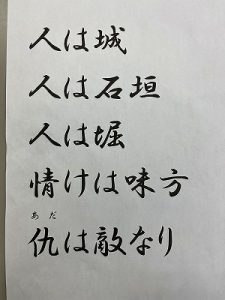 人は城
人は石垣
人は堀
情けは味方
あだ
仇は敵なり